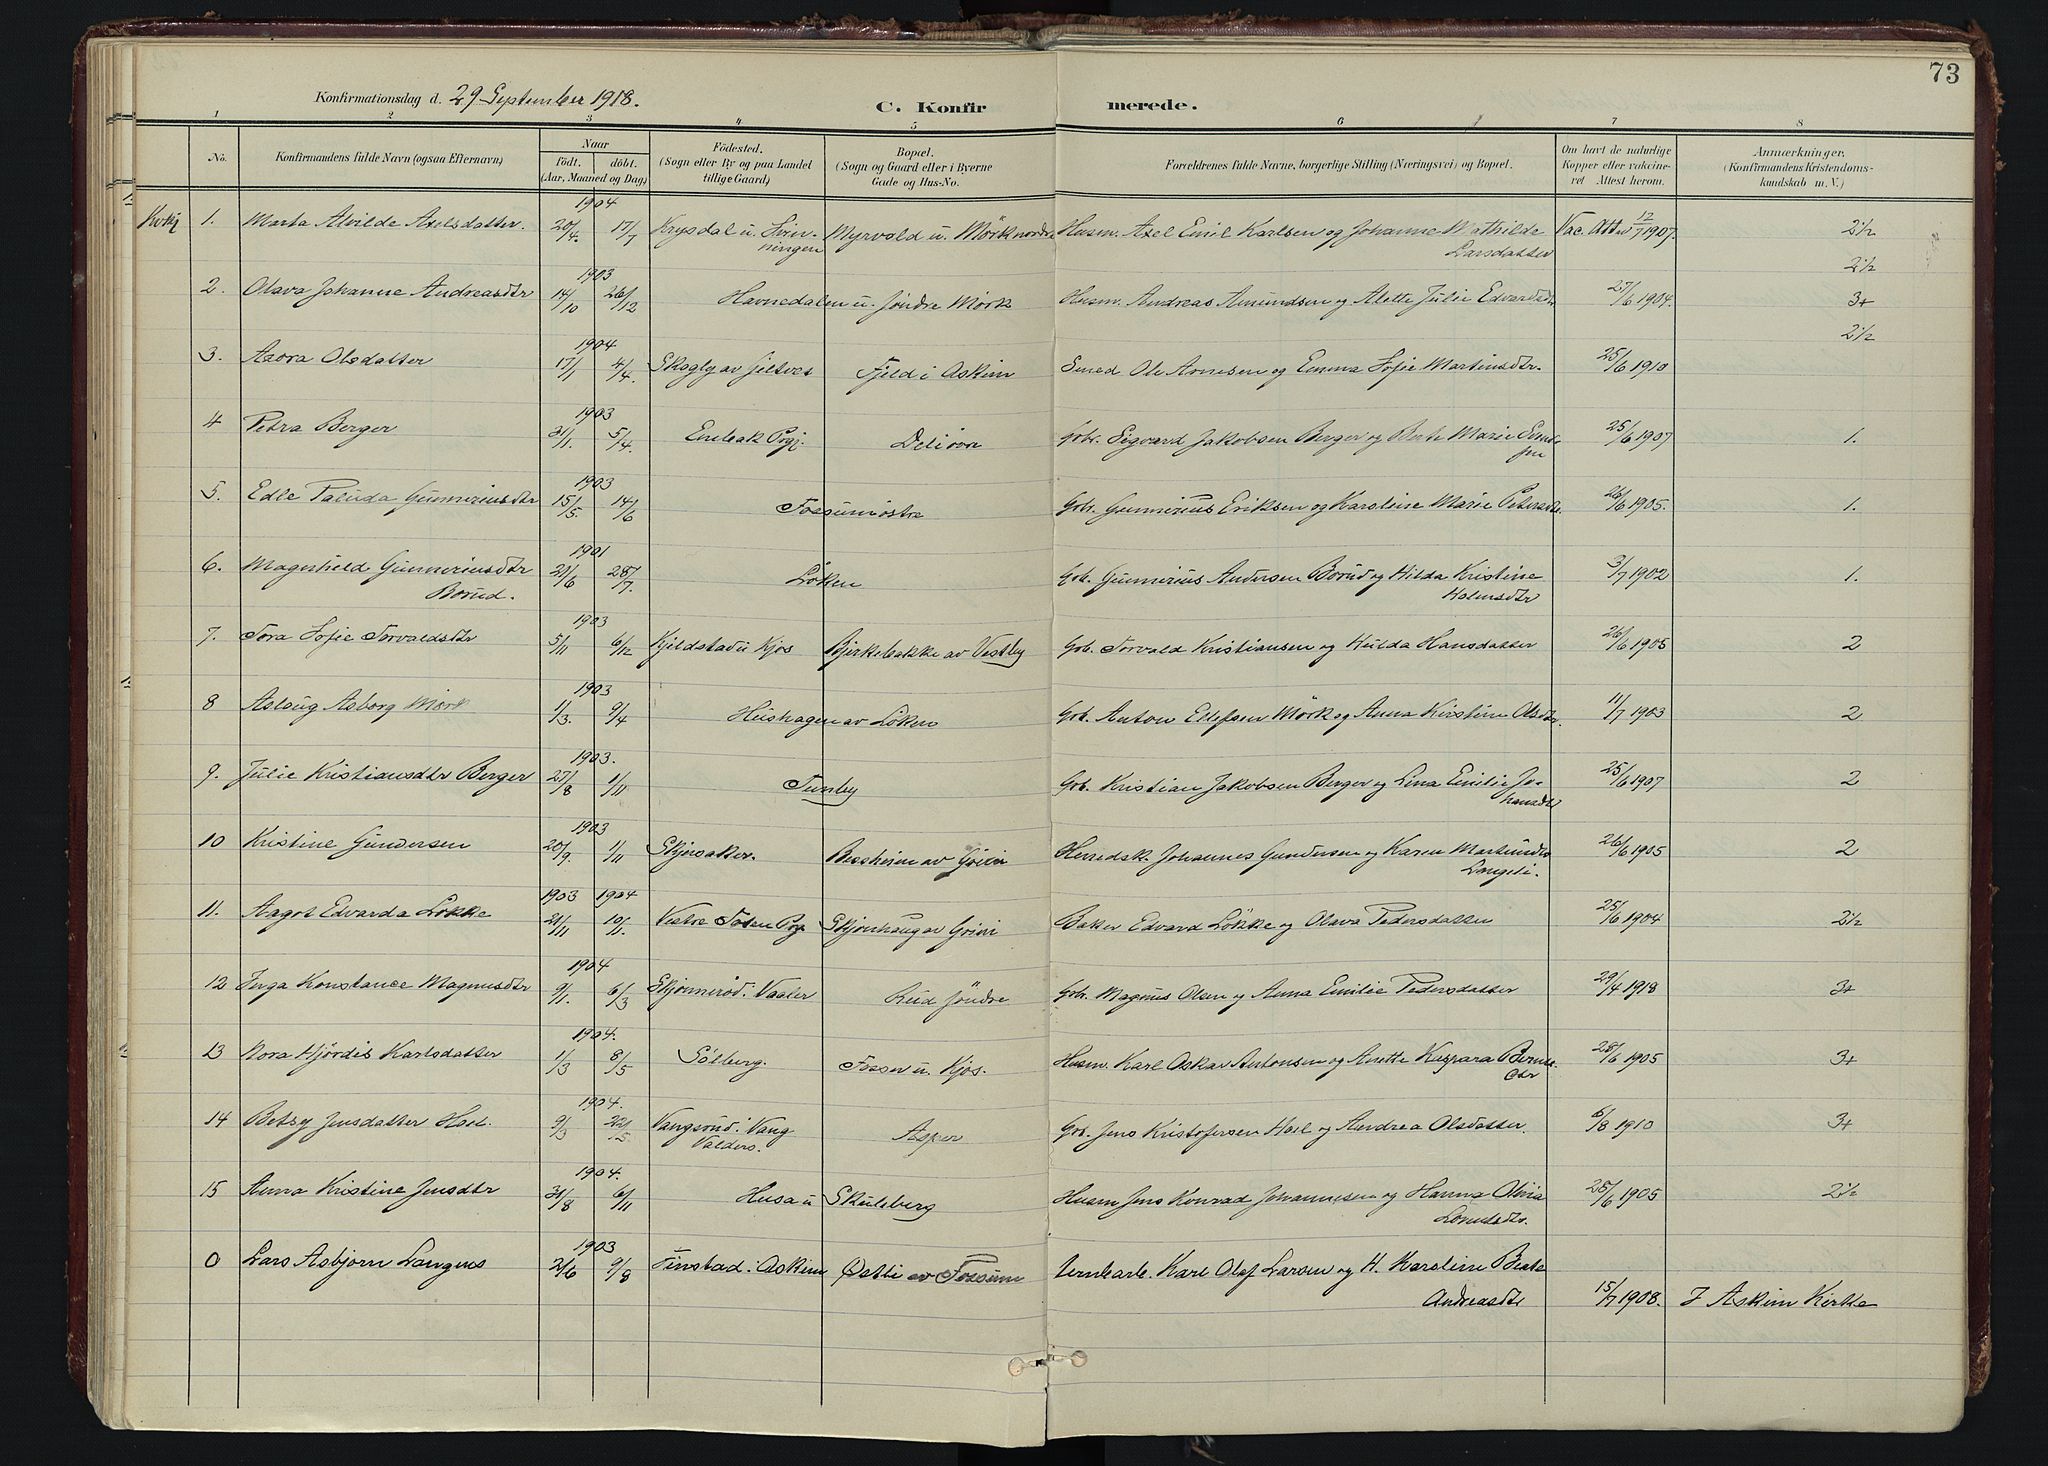 73
Konfirmationsdag d. 29. September 1918. C. Konfirmerede.
1 2 3 4 5 6 7 8
No. Konfirmandens fulde Navn (ogsaa Efternavn) Naar født. døbt. (Aar, Maaned og Dag) Fødested. (Sogn eller By og paa Landet tillige Gaard) Bopæl. (Sogn og Gaard eller i Byerne Gade og Hus-No. Forældrenes fulde Navne, borgerlige Stilling (Næringsvei) og Bopæl. Om havt de naturlige Kopper eller vakcineret Attest herom. Anmærkninger. (Konfirmandens Kristendomskundskab m. V.)
1904
1. Marta Alvilde Axelsdatter. 20/4. 17/7 Krysdal u. Myrvold u. Mörk nordre Husm. Axel Emil Karlsen og Johanne Mathilde Larsdatter Vac. Att. 12/7 1907. 2 1/2
1903 2 1/2
2. Olava Johanne Andreasdtr 14/10 26/12 Havnedalen u. Söndre Mörk Husm. Andreas Amundsen og Alette Julie Edvardsdtr 27/6 1904. 3+
1904 2 1/2
3. Olsdatter 17/1 4/4. Skogly av Fjeld i Askim Smed Ole Arnesen og Emma Sofie Martinsdtr. 25/6 1910
1903
4 Petra Berger 31/1. 5/4. Enebak Pgj. Gbr. Sigvard Jakobsen Berger og Berte Marie 25/6 1907 1.
1903
5. Edle Gunneriusdtr 15/5. 14/6 Fossum östre Gbr. Gunnerius Eriksen og Karoline Marie Petersdtr. 26/6 1905. 1.
1901
6. Magnhild Gunneriusdtr Borud. 21/6 28/7. Löken Gbr. Gunnerius Andersen Borud og Hilda Kristine Holmsdtr 3/7 1902 1.
1903
7. Tora Sofie Torvaldsdtr 5/11 6/12 Kjeldstad u Kjos Birkebakke av Vestby Gbr. Torvald Kristiansen og Hulda Hansdatter 26/6 1905 2
1903
8 Aslaug Asborg Mörk 1/3. 9/4 Hushagen av Löken Gbr. Anton Ellefsen Mörk og Anna Kirstine Olsdtr. 11/7 1903 2
1903.
9. Julie Kristiansdtr Berger 27/8 1/11 Tunby Gbr. Kristian Jakobsen Berger og Lina Emilie Johansdtr 25/6 1907 2
1903
10 Kristine Gundersen 20/9. 1/11 Skjersaker. Bessheim av Grini Herredsk. Johannes Gundersen og Karen Martinsdtr Langeli. 26/6 1905 2
1903 1904
11. Aagot Edvarda Lökke 21/11 10/1. Vestre Toten Pgj. Skjönhaug av Grini Baker Edvard Lökke og Olava Pedersdatter 25/6 1904 2 1/2
1904
12 Inga Konstance Magnusdtr 9/1. 6/3 Skjönneröd. Vaaler Rud Söndre Gbr. Magnus Olsen og Anna Emilie Pedersdatter 29/4 1918 3+
1904.
13 Nora Hjördis Karlsdatter 1/3 8/5 Solberg. Fosser u. Kjos. Husm. Karl Oskar Antonsen og Anette Kaspara 28/6 1905 3+
1904.
14 Betsy Jensdatter Hoel. 9/3 22/5 Vangsund. Vang Valders. Asper Gbr. Jens Kristofersen Hoel og Andrea Olsdatter. 6/8 1910 3+
1904.
15 Anna Kristine Jensdtr 31/8 6/11 Husa u Skulsberg Husm Jens Konrad Johannesen og Hanna Olivia 28/6 1905 2 1/2
1903
0 Lars Asbjørn Langnes 2/6 9/8 Finstad i Askim Østli av Fossum Jernbarb. Karl Olaf Larsen og H. Karoline Beate Andreasdtr 15/7 1908. I Askim Kirke